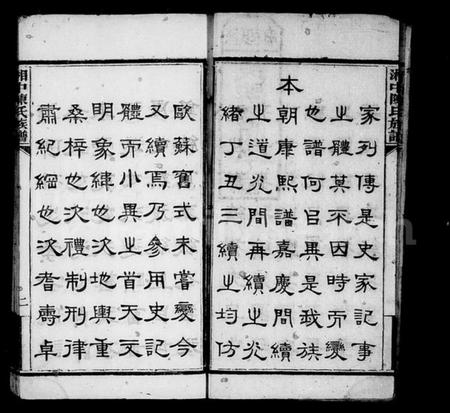 家列傳是史家記事
之體莫不因時而變
也譜何㠯異是我族
本
朝康熙譜嘉慶間續
之道光間再續之光
緒丁丑三續之均仿
歐蘇舊式未嘗變今
又續焉乃參用史記
體而小異之首天文
明象緯也次地輿重
桑梓也次禮制刑律
肅紀綱也次耆壽卓
湘中陳氏族譜
二